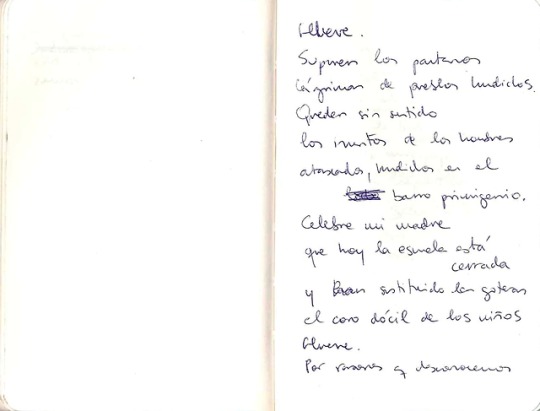 Llueve.
Supuran los pantanos
lágrimas de pueblos hundidos.
Quedan sin sentido
los inventos de los hombres
atascados, hundidos en el
barro primigenio.
Celebre mi madre
que hoy la escuela está
cerrada
y han sustituido las goteras
el coro dócil de los niños
Llueve.
Por razones q desconocemos